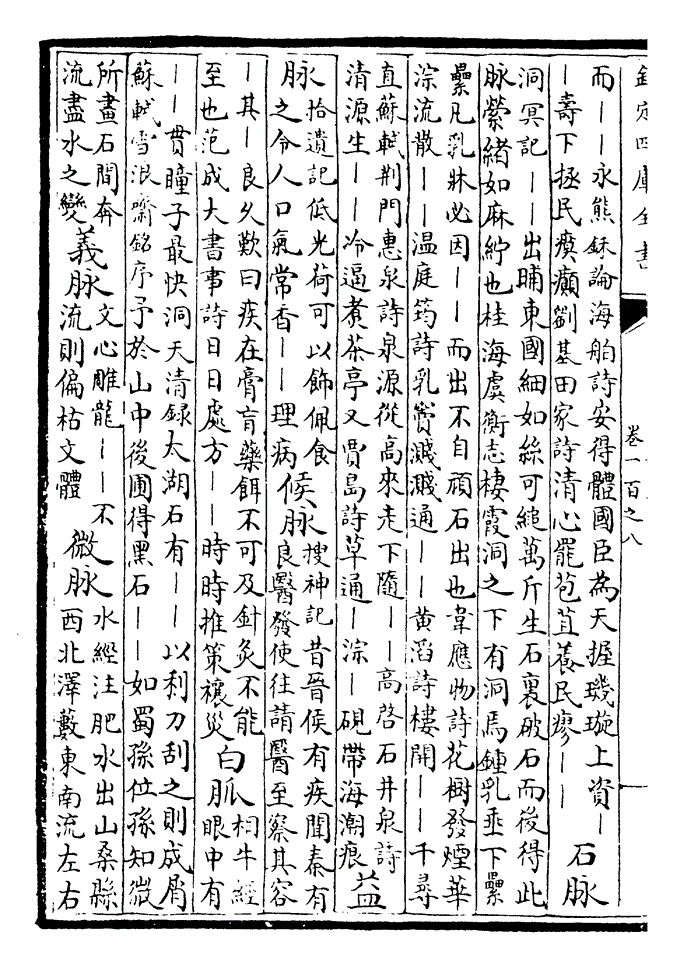 欽定四庫全書
卷一百之八
而——永熊鉌論海舶詩安得體國臣為天握璣璇上資—
—壽下拯民瘼癲劉基田家詩清心罷苞苴養民瘳——
石脉
洞冥記——出晡東國細如絲可縋萬斤生石裏破石而後得此
脉縈緒如麻紵也桂海虞衡志棲霞洞之下有洞焉鍾乳垂下纍
纍凡乳牀必因——而出不自頑石出也韋應物詩花樹發煙華
淙流散——温庭筠詩乳竇濺濺通——黄滔詩樓開——千尋
直蘇軾荆門惠泉詩泉源從高來走下隨——高啓石井泉詩
清源生——冷逼煮茶亭又賈島詩草通—淙—硯帶海潮痕
益
脉
拾遺記低光荷可以飾佩食
之令人口氣常香——理病
候脉
搜神記昔晉侯有疾聞秦有
良醫發使往請醫至察其容
—其—良久歎曰疾在膏肓藥餌不可及針灸不能
至也范成大書事詩日日處方——時時推策禳災
白脈
相牛經
眼中有
——貫瞳子最快洞天清録太湖石有——以利刀刮之則成屑
蘇軾雪浪齋銘序予於山中後圃得黑石——如蜀孫位孫知微
所畫石間奔
流盡水之變
義脉
文心雕龍——不
流則偏枯文體
微脉
水經注肥水出山桑縣
西北澤藪東南流左右